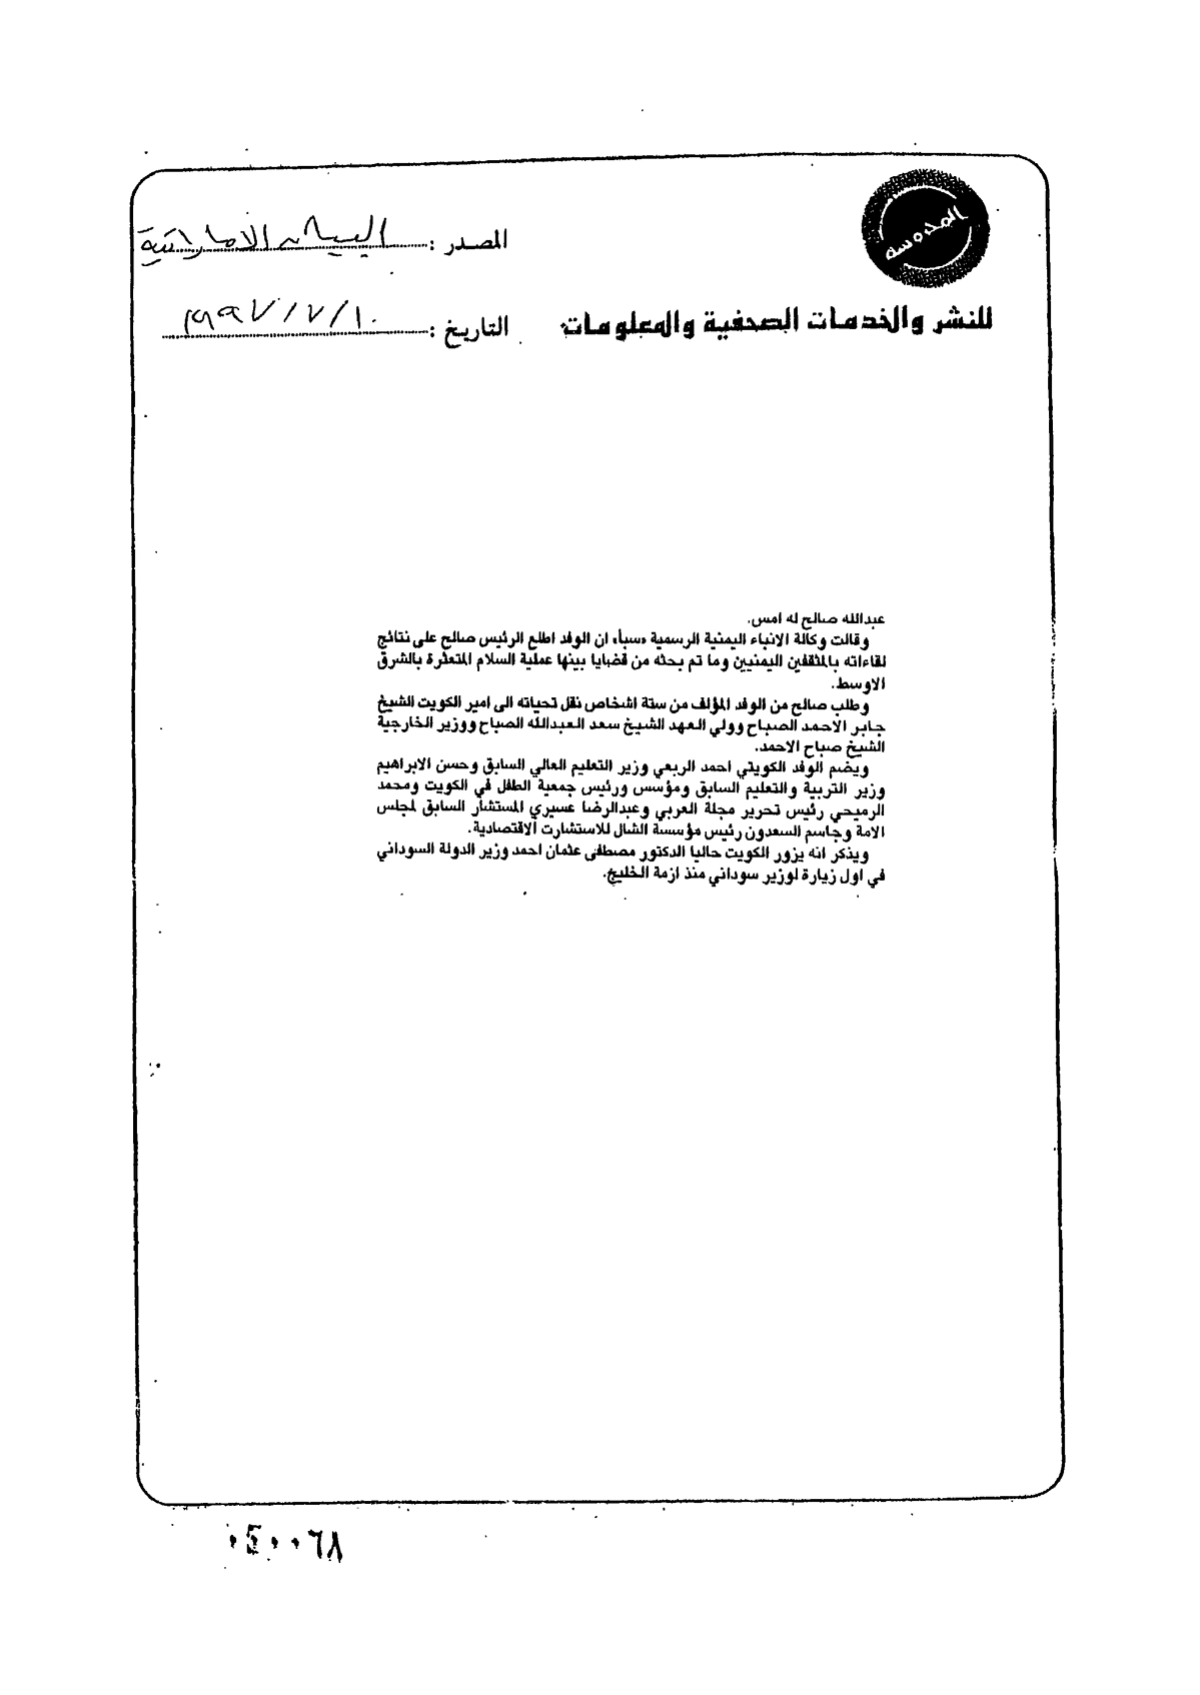 المحروسة
للنشر والخدمات الصحفية والمعلومات
المصدر : البيان الاماراتية
التاريخ : ١٩٩٧/٧/١٠
عبدالله صالح له امس.
وقالت وكالة الانباء اليمنية الرسمية «سبأ» ان الوفد اطلع الرئيس صالح على نتائج
لقاءاته بالمثقفين اليمنيين وما تم بحثه من قضايا بينها عملية السلام المتعثرة بالشرق
الاوسط.
وطلب صالح من الوفد المؤلف من ستة اشخاص نقل تحياته الى امير الكويت الشيخ
جابر الاحمد الصباح وولي العهد الشيخ سعد العبدالله الصباح ووزير الخارجية
الشيخ صباح الاحمد.
ويضم الوفد الكويتي احمد الربعي وزير التعليم العالي السابق وحسن الابراهيم
وزير التربية والتعليم السابق ومؤسس ورئيس جمعية الطفل في الكويت ومحمد
الرميحي رئيس تحرير مجلة العربي وعبدالرضا عسيري المستشار السابق لمجلس
الامة وجاسم السعدون رئيس مؤسسة الشال للاستشارت الاقتصادية.
ويذكر انه يزور الكويت حاليا الدكتور مصطفى عثمان احمد وزير الدولة السوداني
في اول زيارة لوزير سوداني منذ ازمة الخليج.